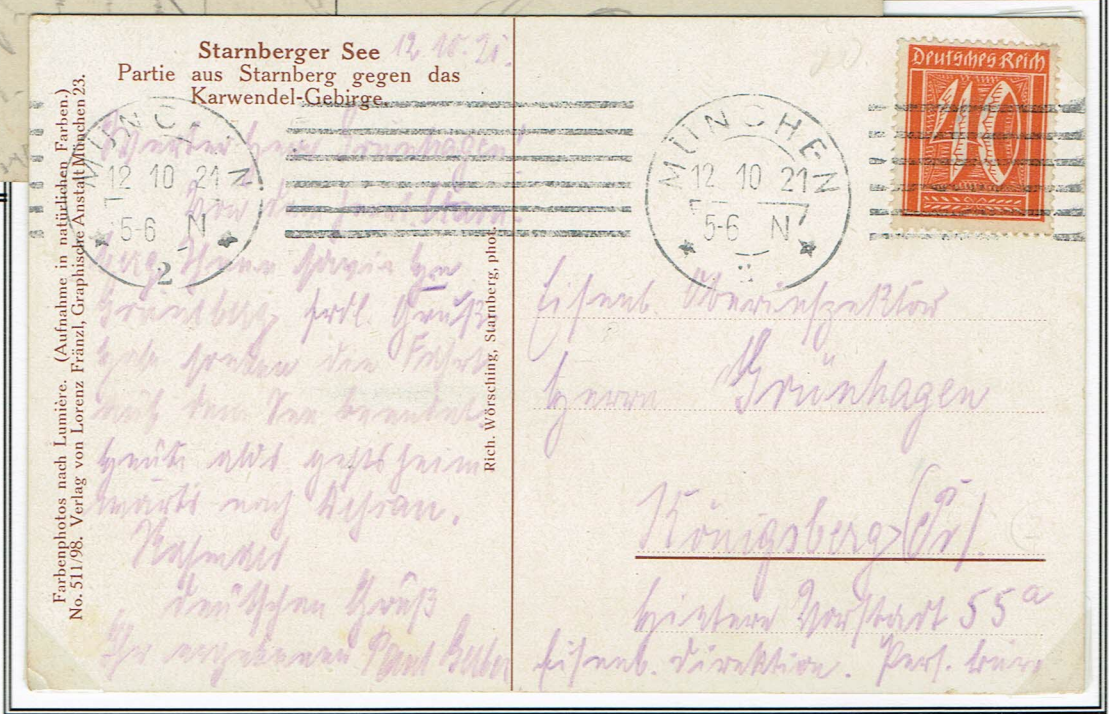 Starnberger See
12.10.21.
Partie aus Starnberg gegen das
Karwendel-Gebirge.
Farbenphotos nach Lumière. (Aufnahme in natürlichen Farben.)
No. 511/98. Verlag von Lorenz Fränzl, Graphische Anstalt München 23.
Rich. Wörsching, Starnberg, phot.
MÜNCHEN
12 10 21
5-6 N
2
MÜNCHEN
12 10 21
5-6 N
Deutsches Reich
40
Werter Herr Grünhagen!
Ihnen sowie
frdl. Grüße
die Fahrt
auf dem See beendet.
Heute geht's heim
wärts nach
deutschen Gruß
Ihr ergebener Paul
Eisenb. Oberinspektor
Herrn Grünhagen
Königsberg (Pr).
Hintere Vorstadt 55a
Eisenb. Direktion. Pers. büro